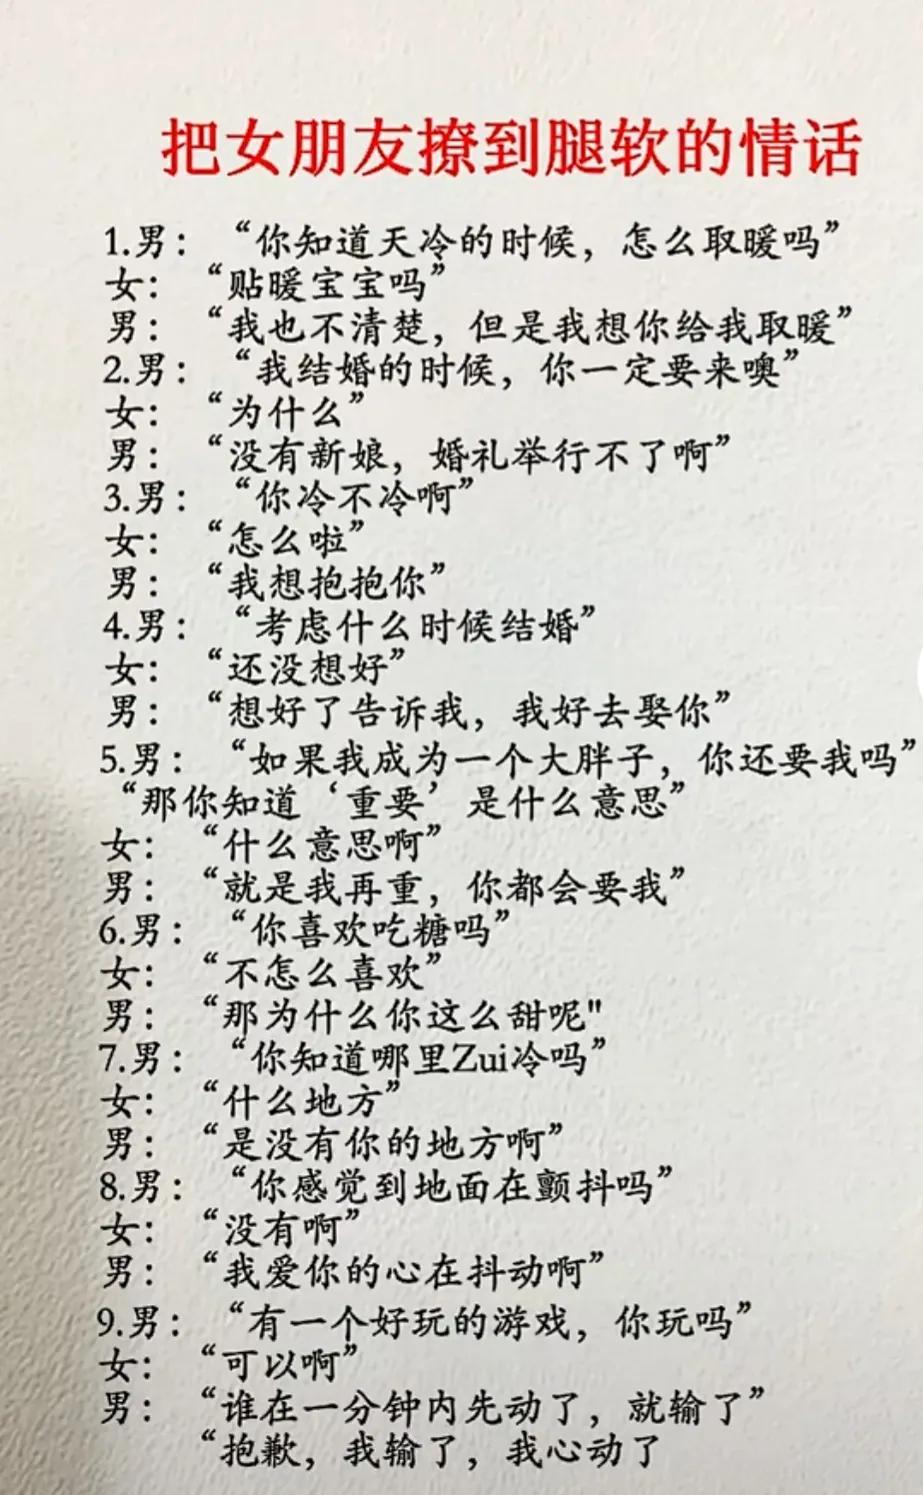 把女朋友撩到腿软的情话
1.男：“你知道天冷的时候，怎么取暖吗”
女：“贴暖宝宝吗”
男：“我也不清楚，但是我想你给我取暖”
2.男：“我结婚的时候，你一定要来噢”
女：“为什么”
男：“没有新娘，婚礼举行不了啊”
3.男：“你冷不冷啊”
女：“怎么啦”
男：“我想抱抱你”
4.男：“考虑什么时候结婚”
女：“还没想好”
男：“想好了告诉我，我好去娶你”
5.男：“如果我成为一个大胖子，你还要我吗”
“那你知道‘重要’是什么意思”
女：“什么意思啊”
男：“就是我再重，你都会要我”
6.男：“你喜欢吃糖吗”
女：“不怎么喜欢”
男：“那为什么你这么甜呢"
7.男：“你知道哪里Zui冷吗”
女：“什么地方”
男：“是没有你的地方啊”
8.男：“你感觉到地面在颤抖吗”
女：“没有啊”
男：“我爱你的心在抖动啊”
9.男：“有一个好玩的游戏，你玩吗”
女：“可以啊”
男：“谁在一分钟内先动了，就输了”
“抱歉，我输了，我心动了